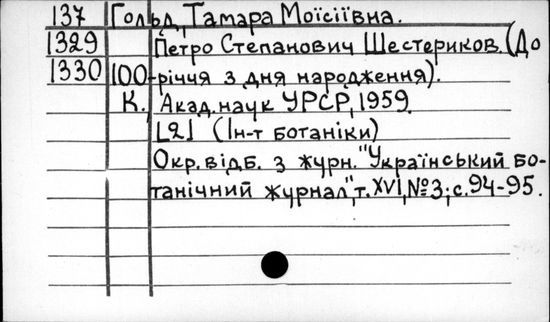 137 Гольд, Тамара Моїсіївна.
1329 Петро Степанович Шестериков. (До
1330 100-річчя з дня народження).
К., Акад. наук УРСР, 1959.
[2] (Ін-т ботаніки)
Окр. відб. з журн. "Український бо-
танічний журнал", т. XVI, №3; с. 94-95.